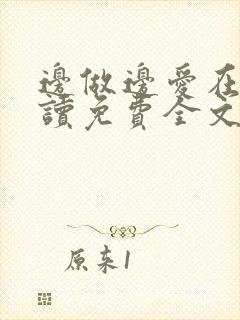 邊做邊愛在
讀免費全文
原来1